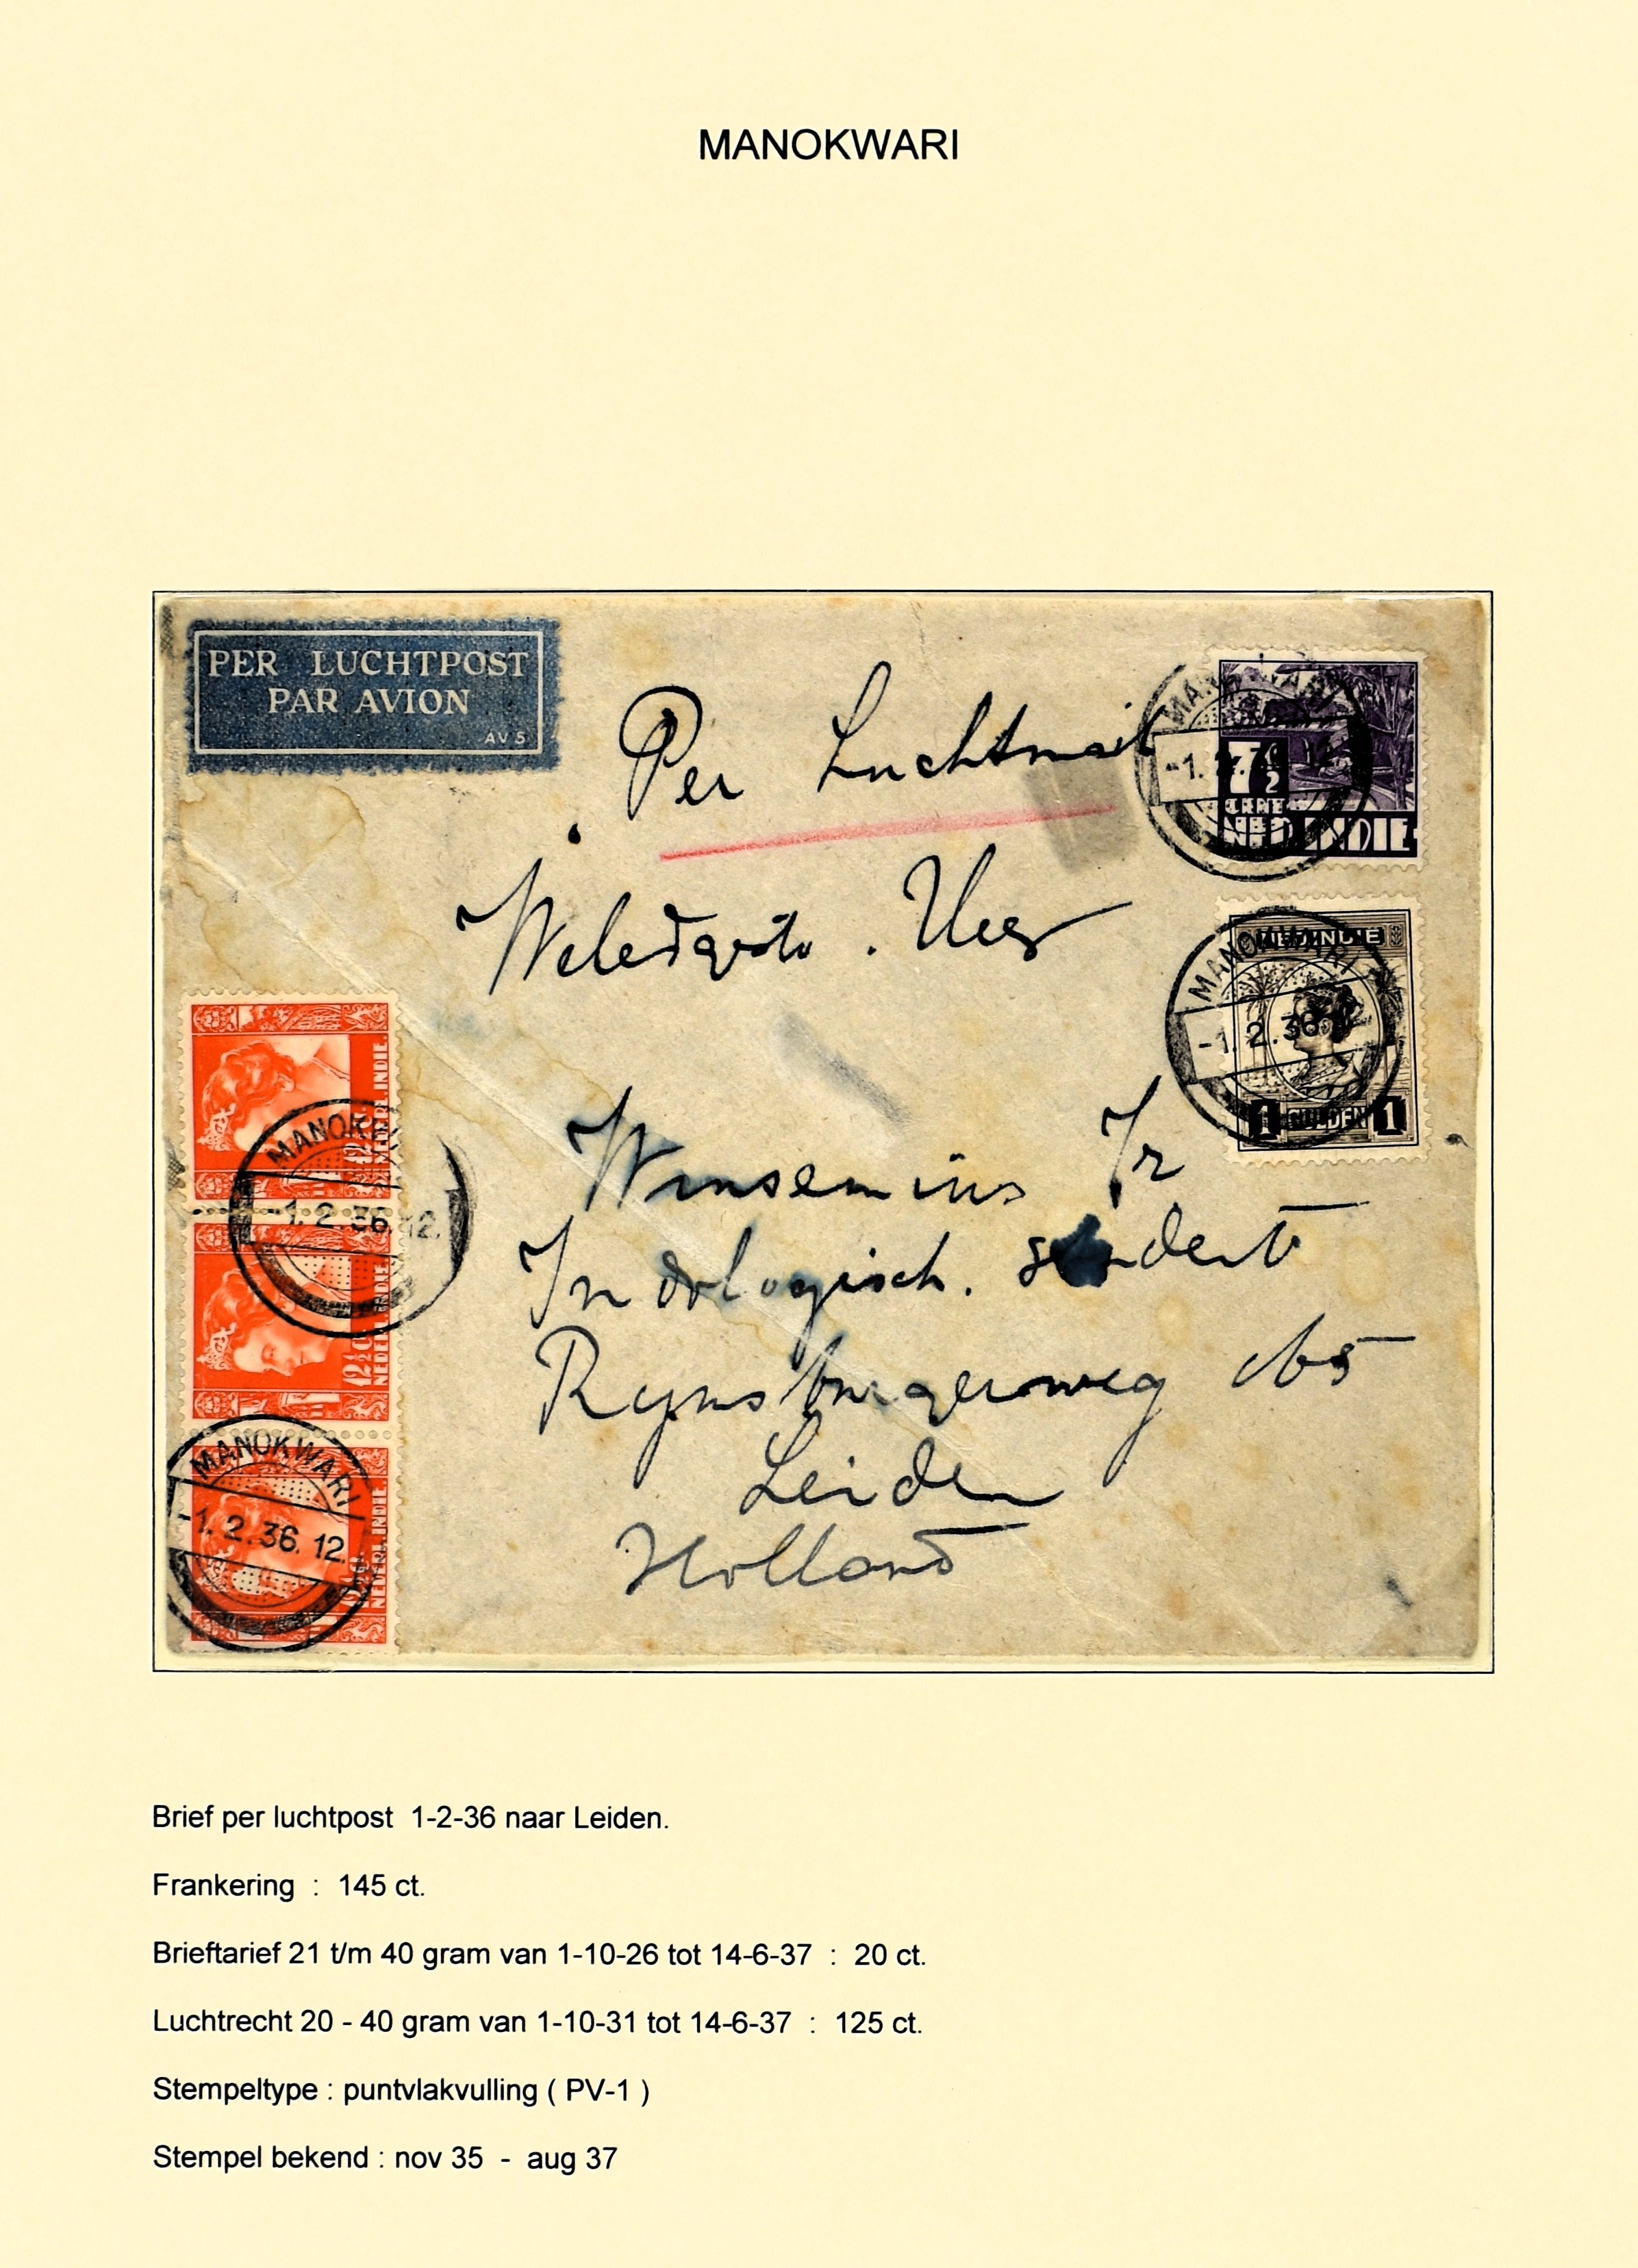 MANOKWARI
PER LUCHTPOST
PAR AVION
AV 5
Per Luchtmail
MANOKWARI
-1. 2. 12.
7½
CENT
NED INDIE
. Heer
NED INDIE
MANOKWARI
-1. 2. 36 12.
1 GULDEN 1
NEDERL. INDIE.
MANOKWARI
-1. 2. 36. 12.
12½ C
NEDERL. INDIE.
MANOKWARI
-1. 2. 36. 12.
NEDERL. INDIE.
Winsemius Jr
Indologisch. student
Rynsburgerweg
Leiden
Holland
Brief per luchtpost 1-2-36 naar Leiden.
Frankering : 145 ct.
Brieftarief 21 t/m 40 gram van 1-10-26 tot 14-6-37 : 20 ct.
Luchtrecht 20 - 40 gram van 1-10-31 tot 14-6-37 : 125 ct.
Stempeltype : puntvlakvulling ( PV-1 )
Stempel bekend : nov 35 - aug 37